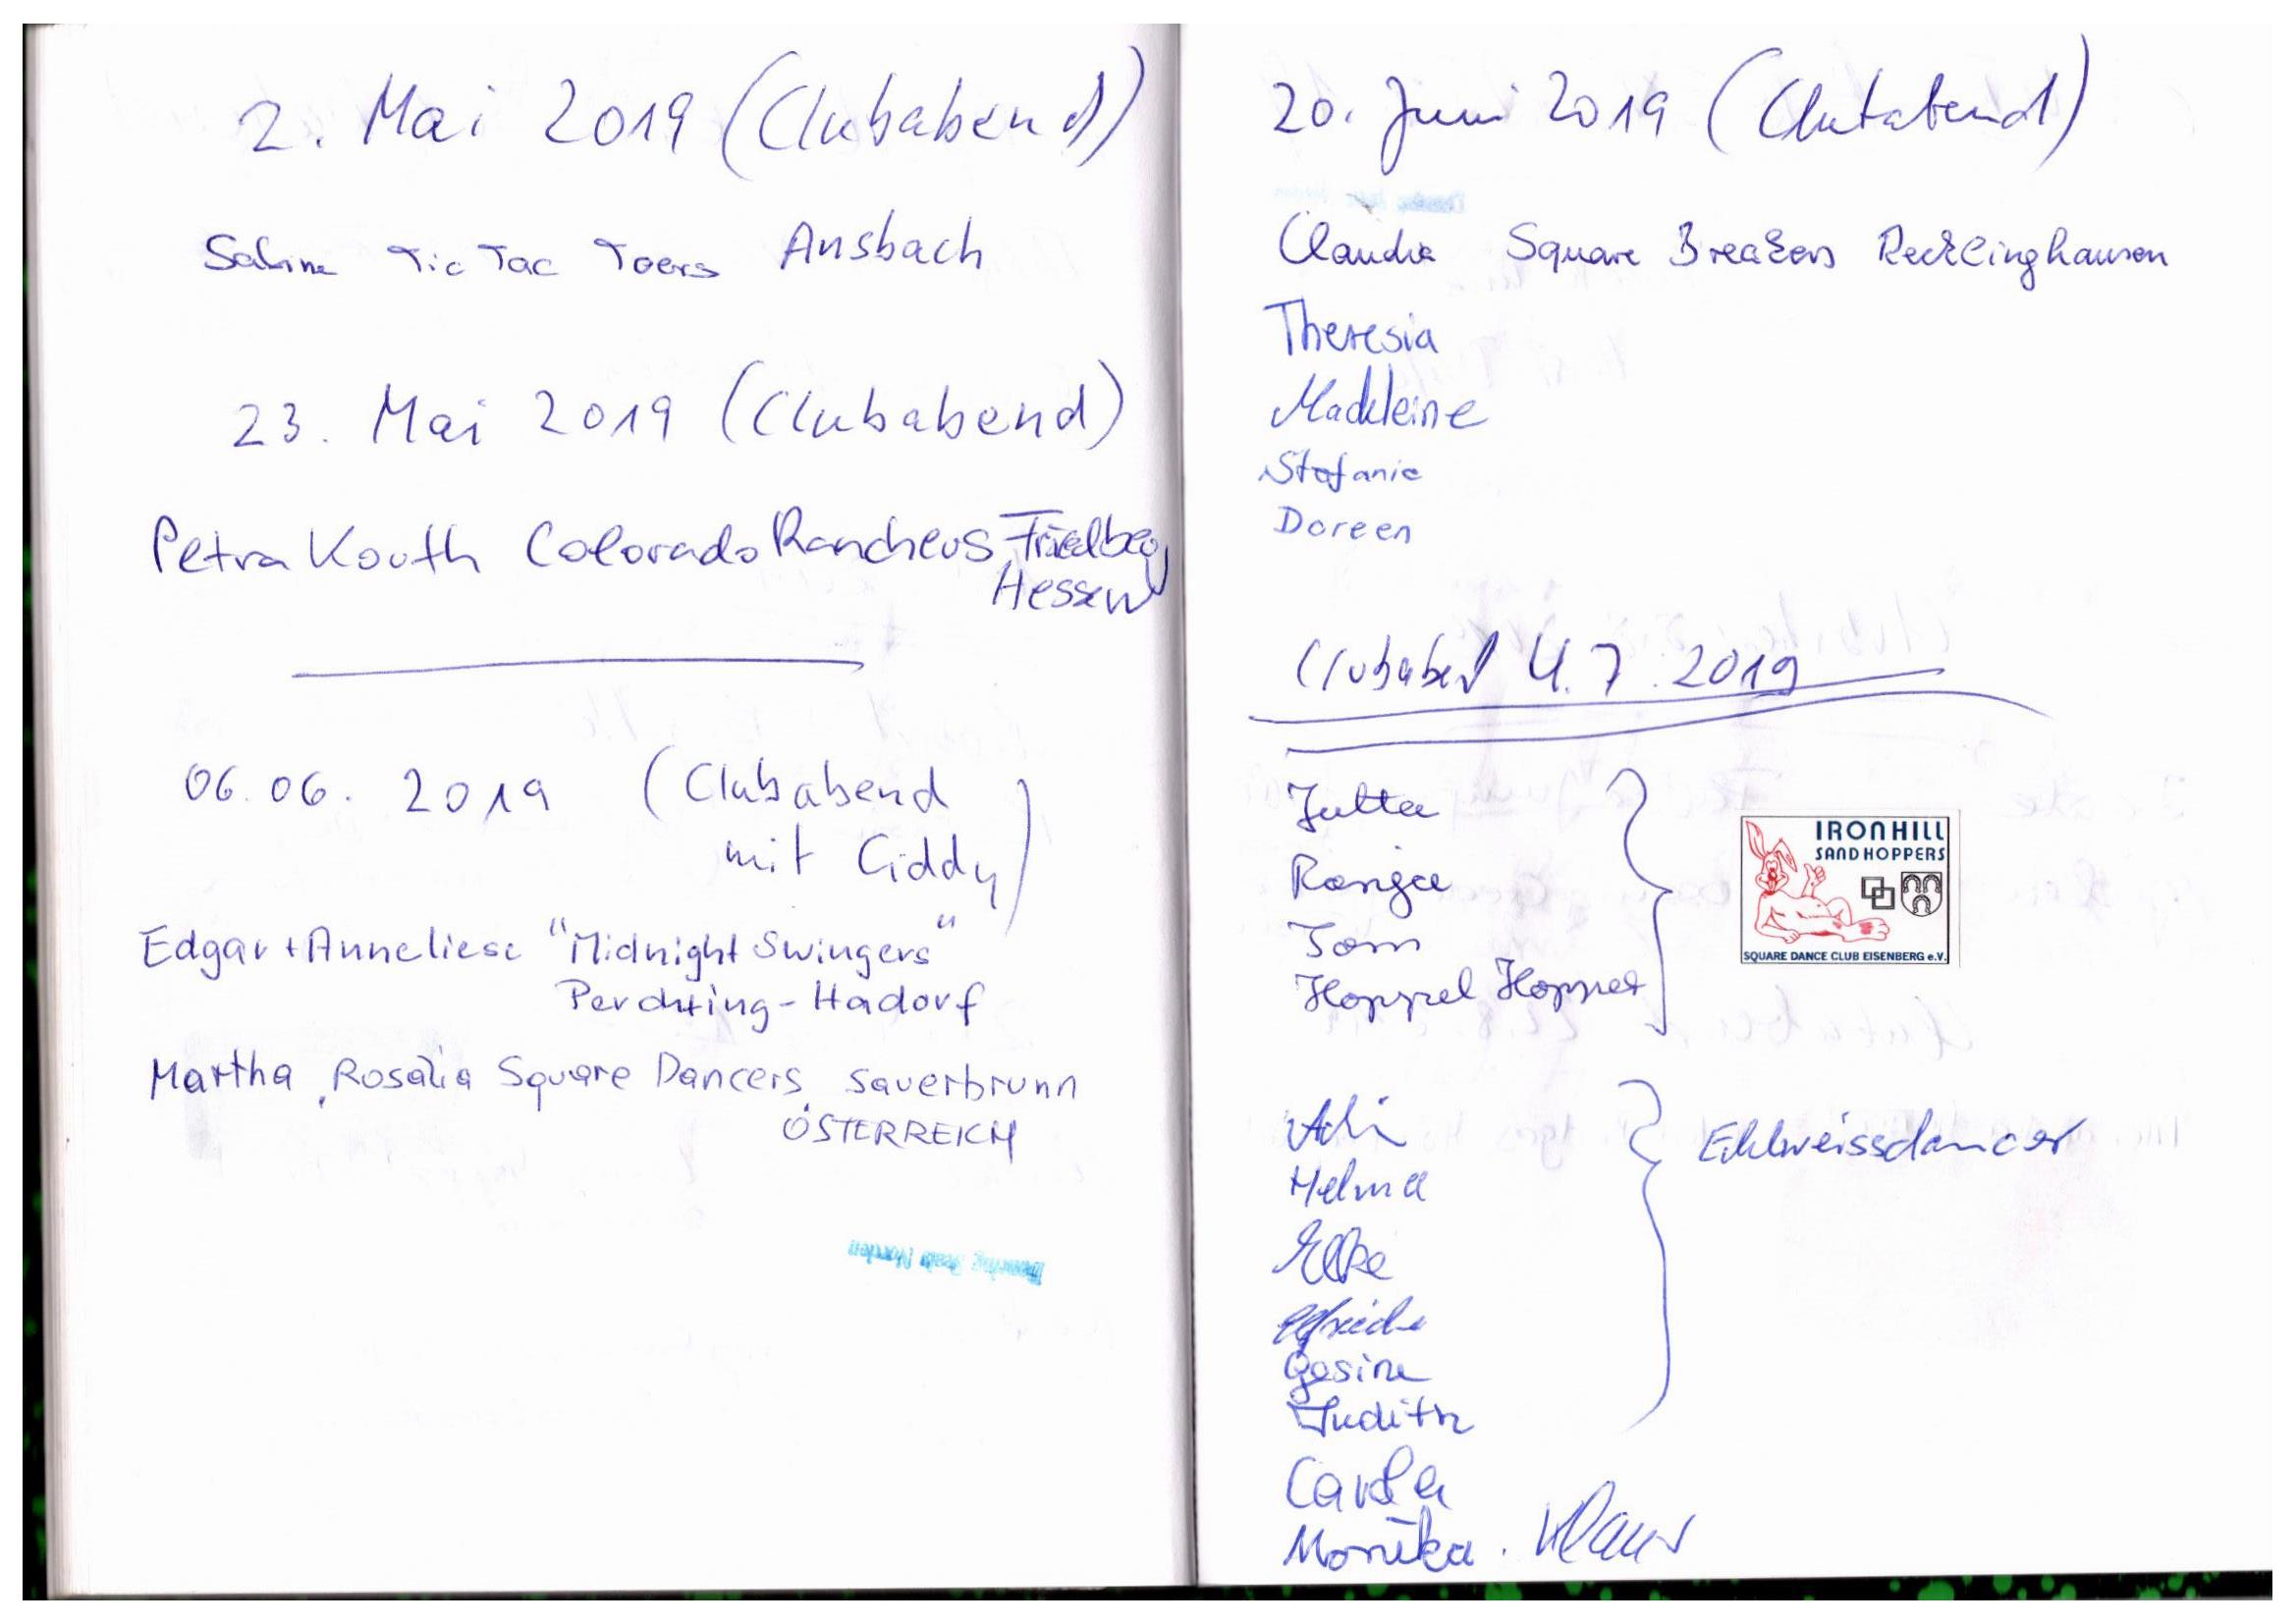 2. Mai 2019 (Clubabend)
Sabine Tic Tac Toers Ansbach
23. Mai 2019 (Clubabend)
Petra Kouth Colorado Ranchers Friedberg
Hessen
06.06. 2019 (Clubabend
mit Ciddy)
Edgar + Anneliese "Midnight Swingers"
Perchting-Hadorf
Martha, Rosalia Square Dancers, Sauerbrunn
ÖSTERREICH
20. Juni 2019 (Clubabend)
Claudia Square Breakers Recklinghausen
Theresia
Madeleine
Stefanie
Doreen
Clubabend 4.7.2019
Jutta
Ranga
Tom
Hoppel Hopper
IRONHILL
SANDHOPPERS
SQUARE DANCE CLUB EISENBERG e.V.
Adi
Helma
Edelweissdancer
Elke
Elfriede
Gesine
Judith
Carola
Monika. Klaus